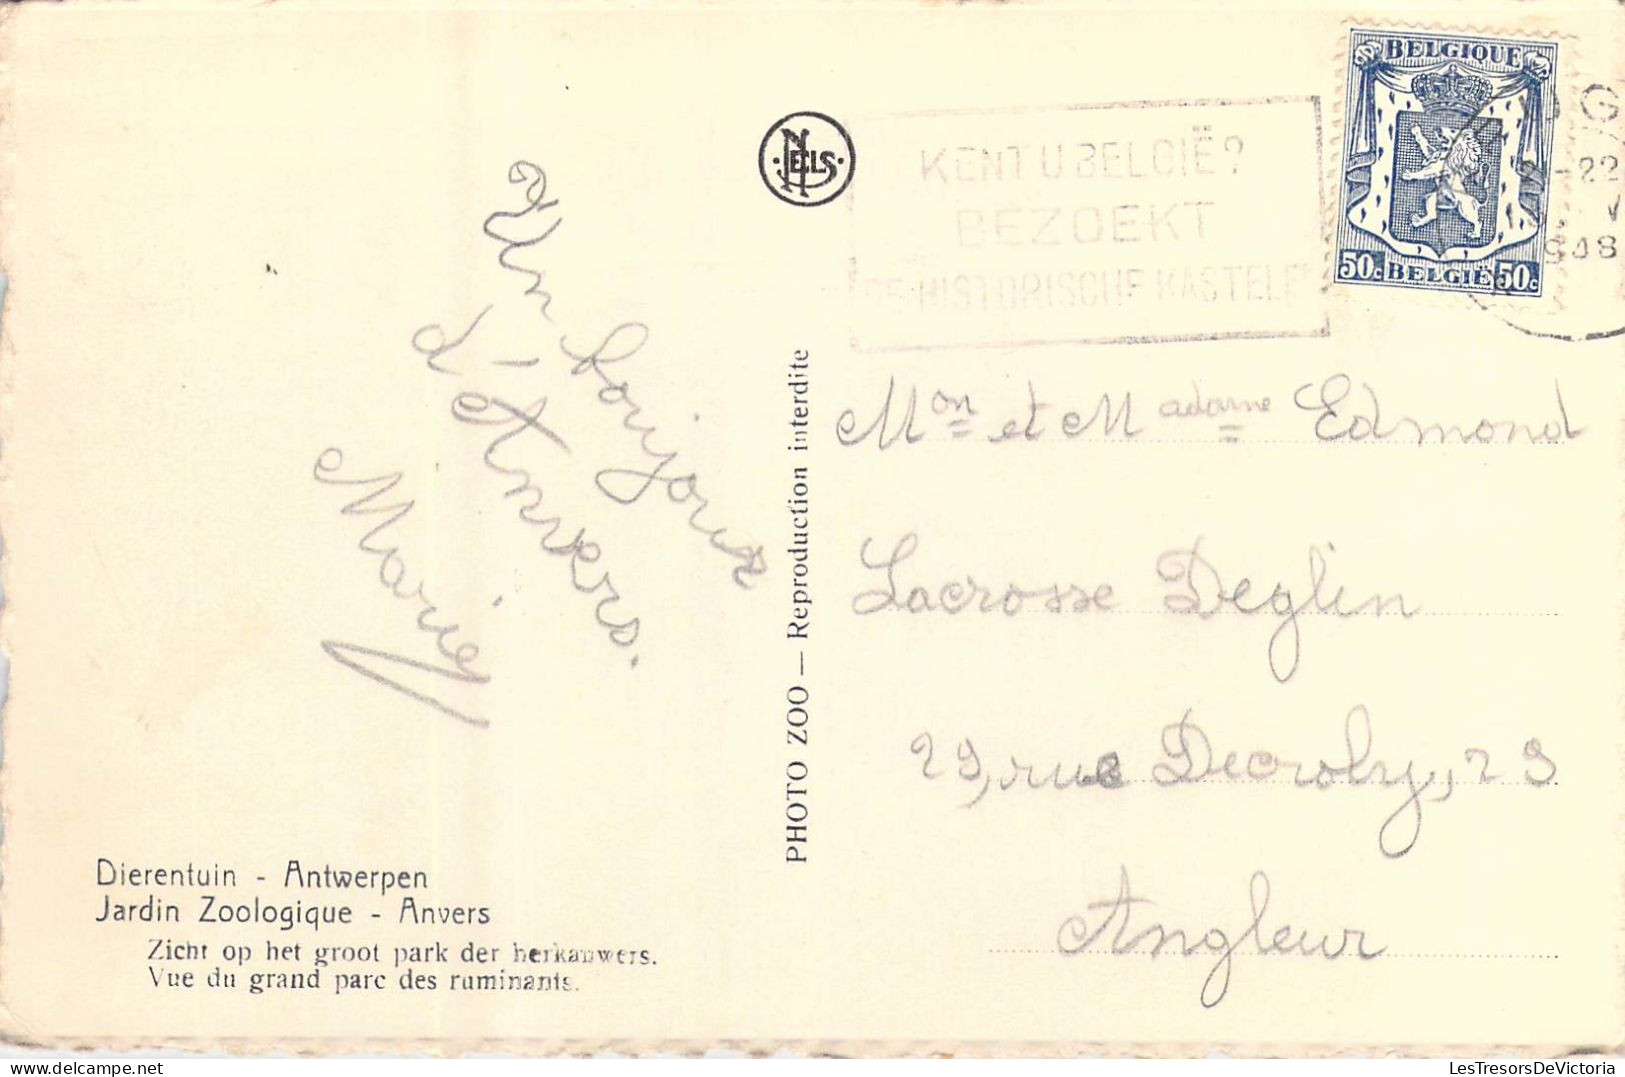 Un bonjour
d'Anvers.
Marie
Dierentuin - Antwerpen
Jardin Zoologique - Anvers
Zicht op het groot park der herkauwers.
Vue du grand parc des ruminants.
NELS
PHOTO ZOO — Reproduction interdite
KENT U BELGIË?
BEZOEKT
DE HISTORISCHE KASTELE
BELGIQUE
50c BELGIË 50c
-22
Mon et Madame Edmond
Lacrosse Deglin
29, rue Decroly, 29
Angleur
LesTresorsDeVictoria